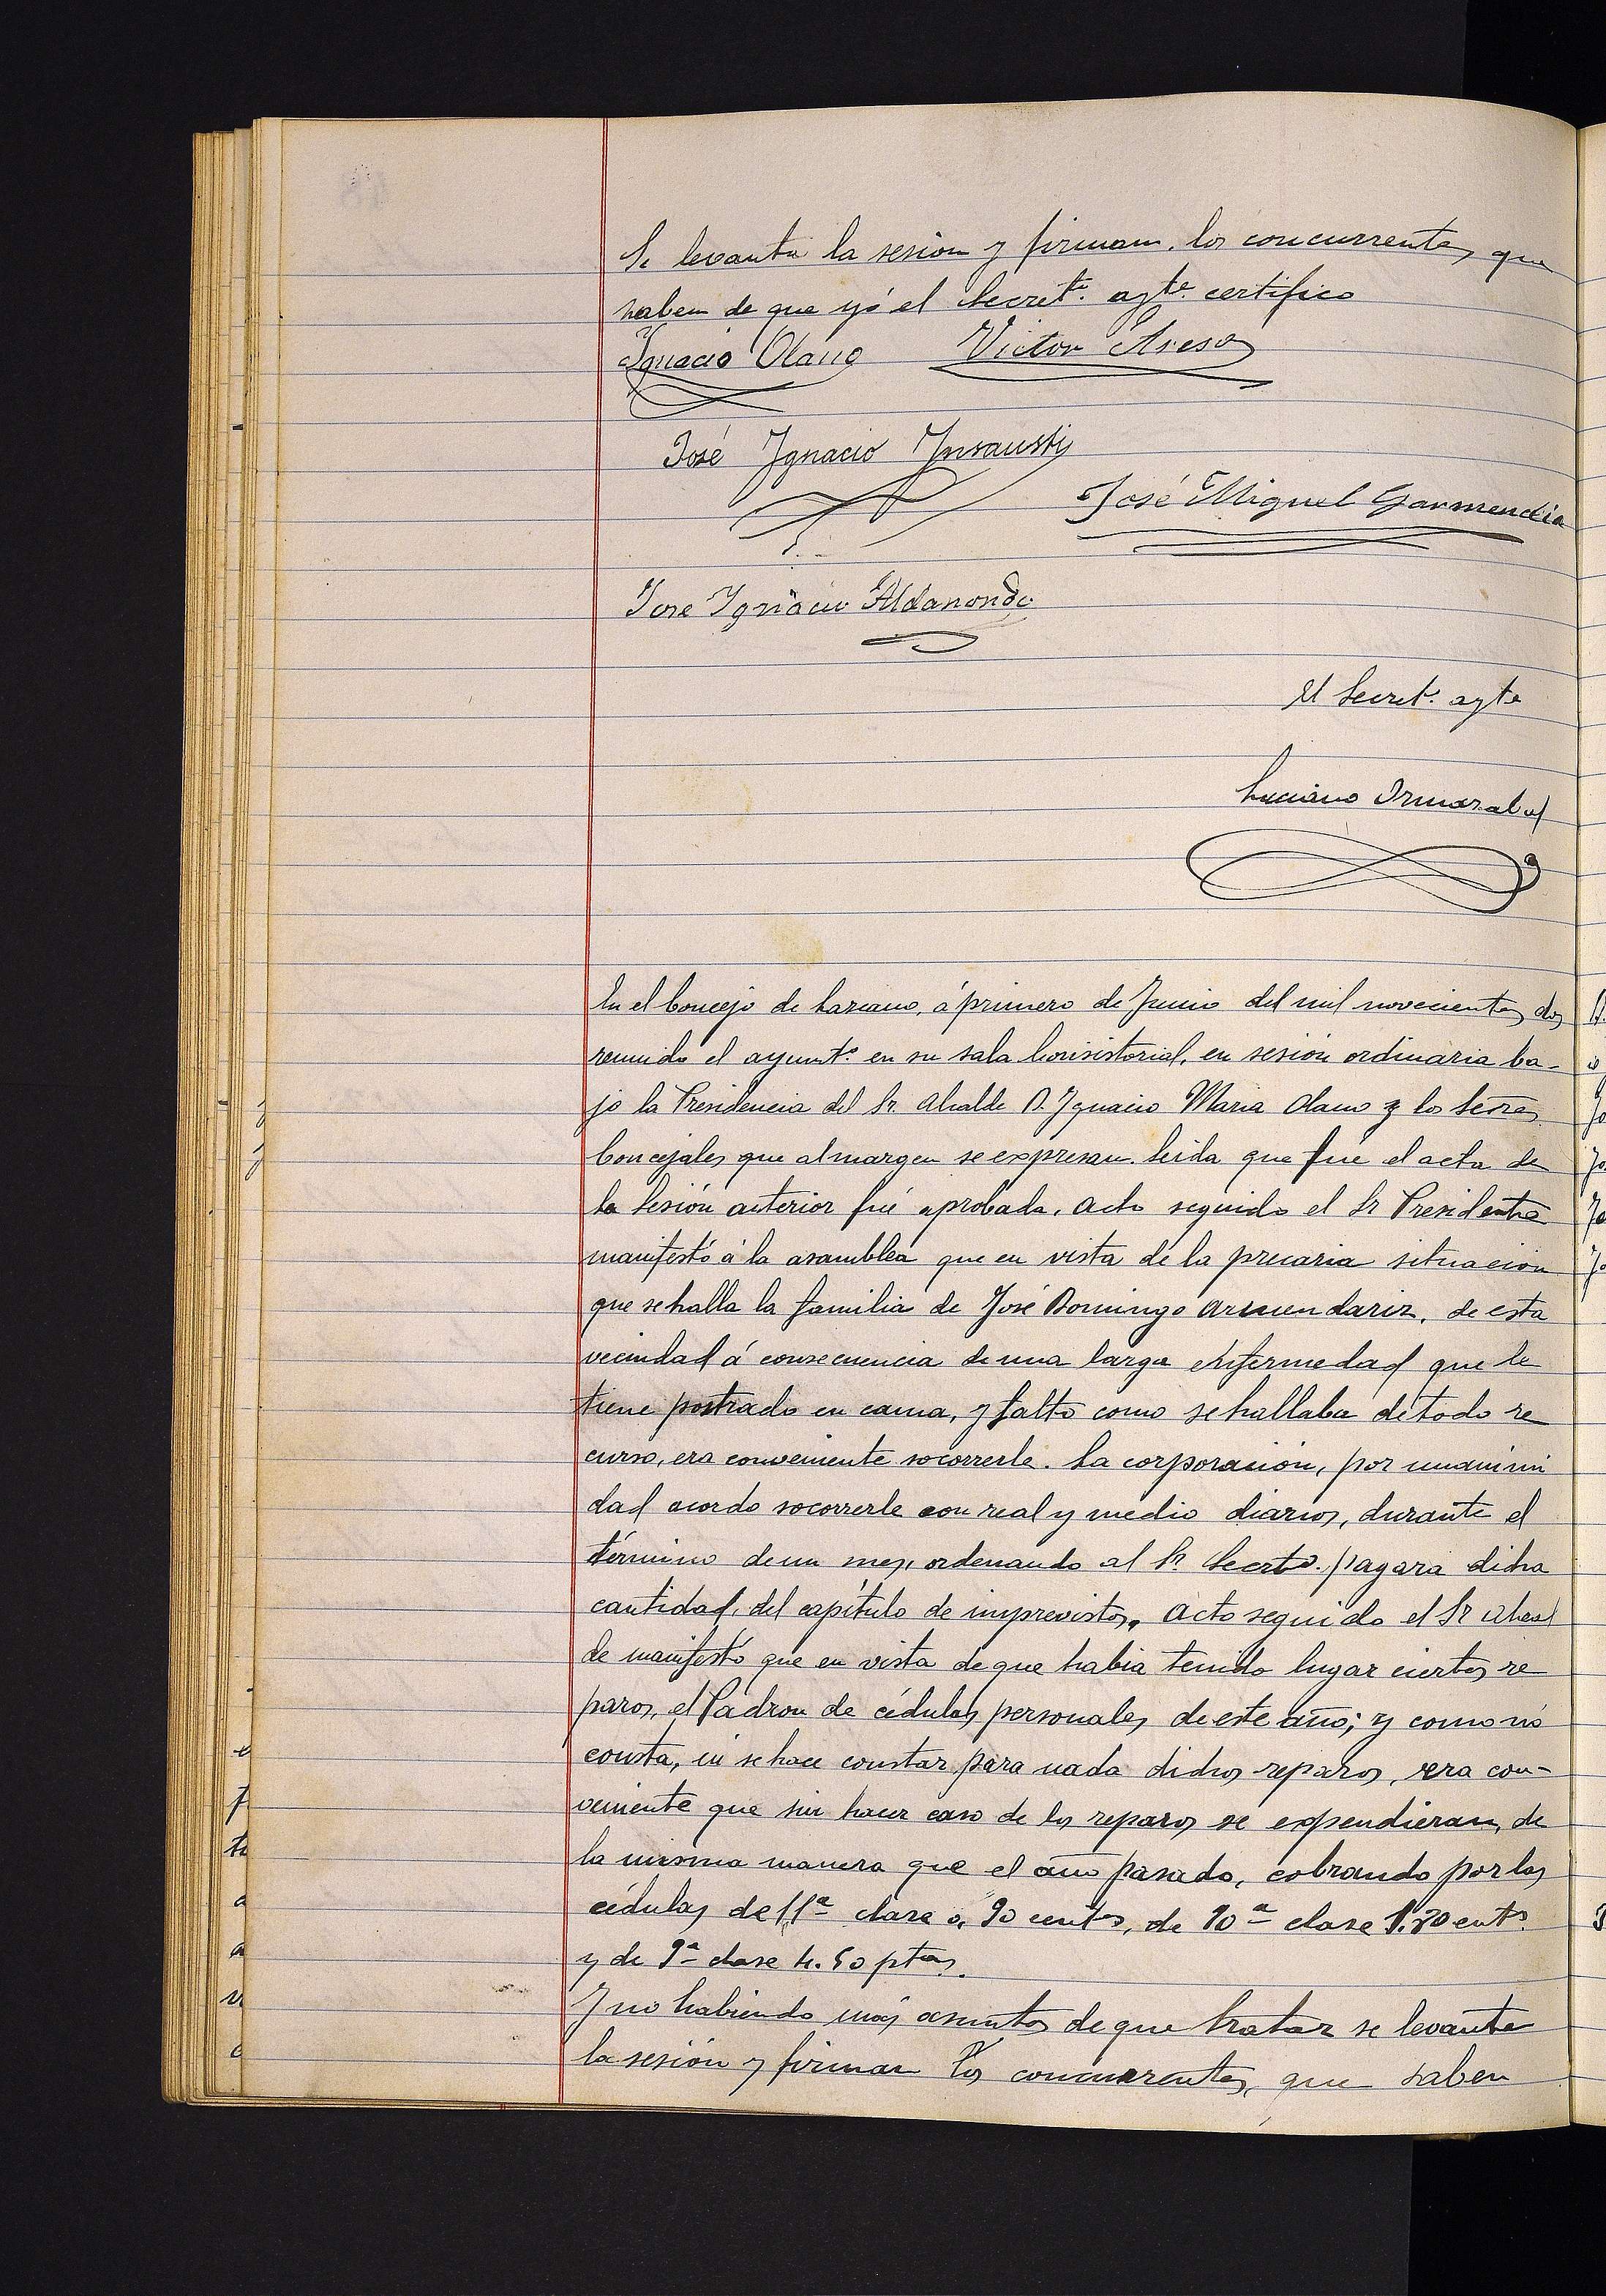 Se levanta la sesion y firman, los concurrentes que
saben de que yó el Secretº. aytº. certifico
Ignacio Olano Victor Areso
José Ygnacio Ynsausti
José Miguel Garmendia
Jose Ygnacio Aldanondo
El Secretº. aytº
Luciano Ormazabal
En el Concejo de Lazcano, á primero de Junio del mil novecientos dos
reunido el ayuntº. en su sala Consistorial, en sesión ordinaria ba-
jo la Presidencia del Sr. Alcalde D. Ygnacio Maria Olano y los Señres
Concejales que al margen se expresan. Leida que fué el acta de
la sesión anterior fué aprobada. Acto seguido el Sr Presidente
manifestó á la asamblea que en vista de la precaria situacion
que se halla la familia de José Domingo Armendariz, de esta
vecindad á consecuencia de una larga enfermedad que le
tiene postrado en cama, y falto como se hallaba de todo re
curso, era conveniente socorrerle. La corporación, por unanimi
dad acordo socorrerle con real y medio diarios, durante el
término de un mes, ordenando al Sr. Secrtº. pagara dicha
cantidad, del capítulo de imprevistos. Acto seguido el Sr Alcal
de manifestó que en vista de que habia tenido lugar ciertos re
paros, el Padron de cédulas personales de este año; y como nó
consta, ni se hace constar para nada dichos reparos, era con-
veniente que sin hacer caso de los reparos se expendieran, de
la misma manera que el año pasado, cobrando por las
cédulas de 11ª clase á 90 cents, de 10ª clase 1.70 cnts.
y de 9ª clase 4.50 ptas.
Y no habiendo más asuntos de que tratar se levanta
la sesión y firman los concurrentes, que saben